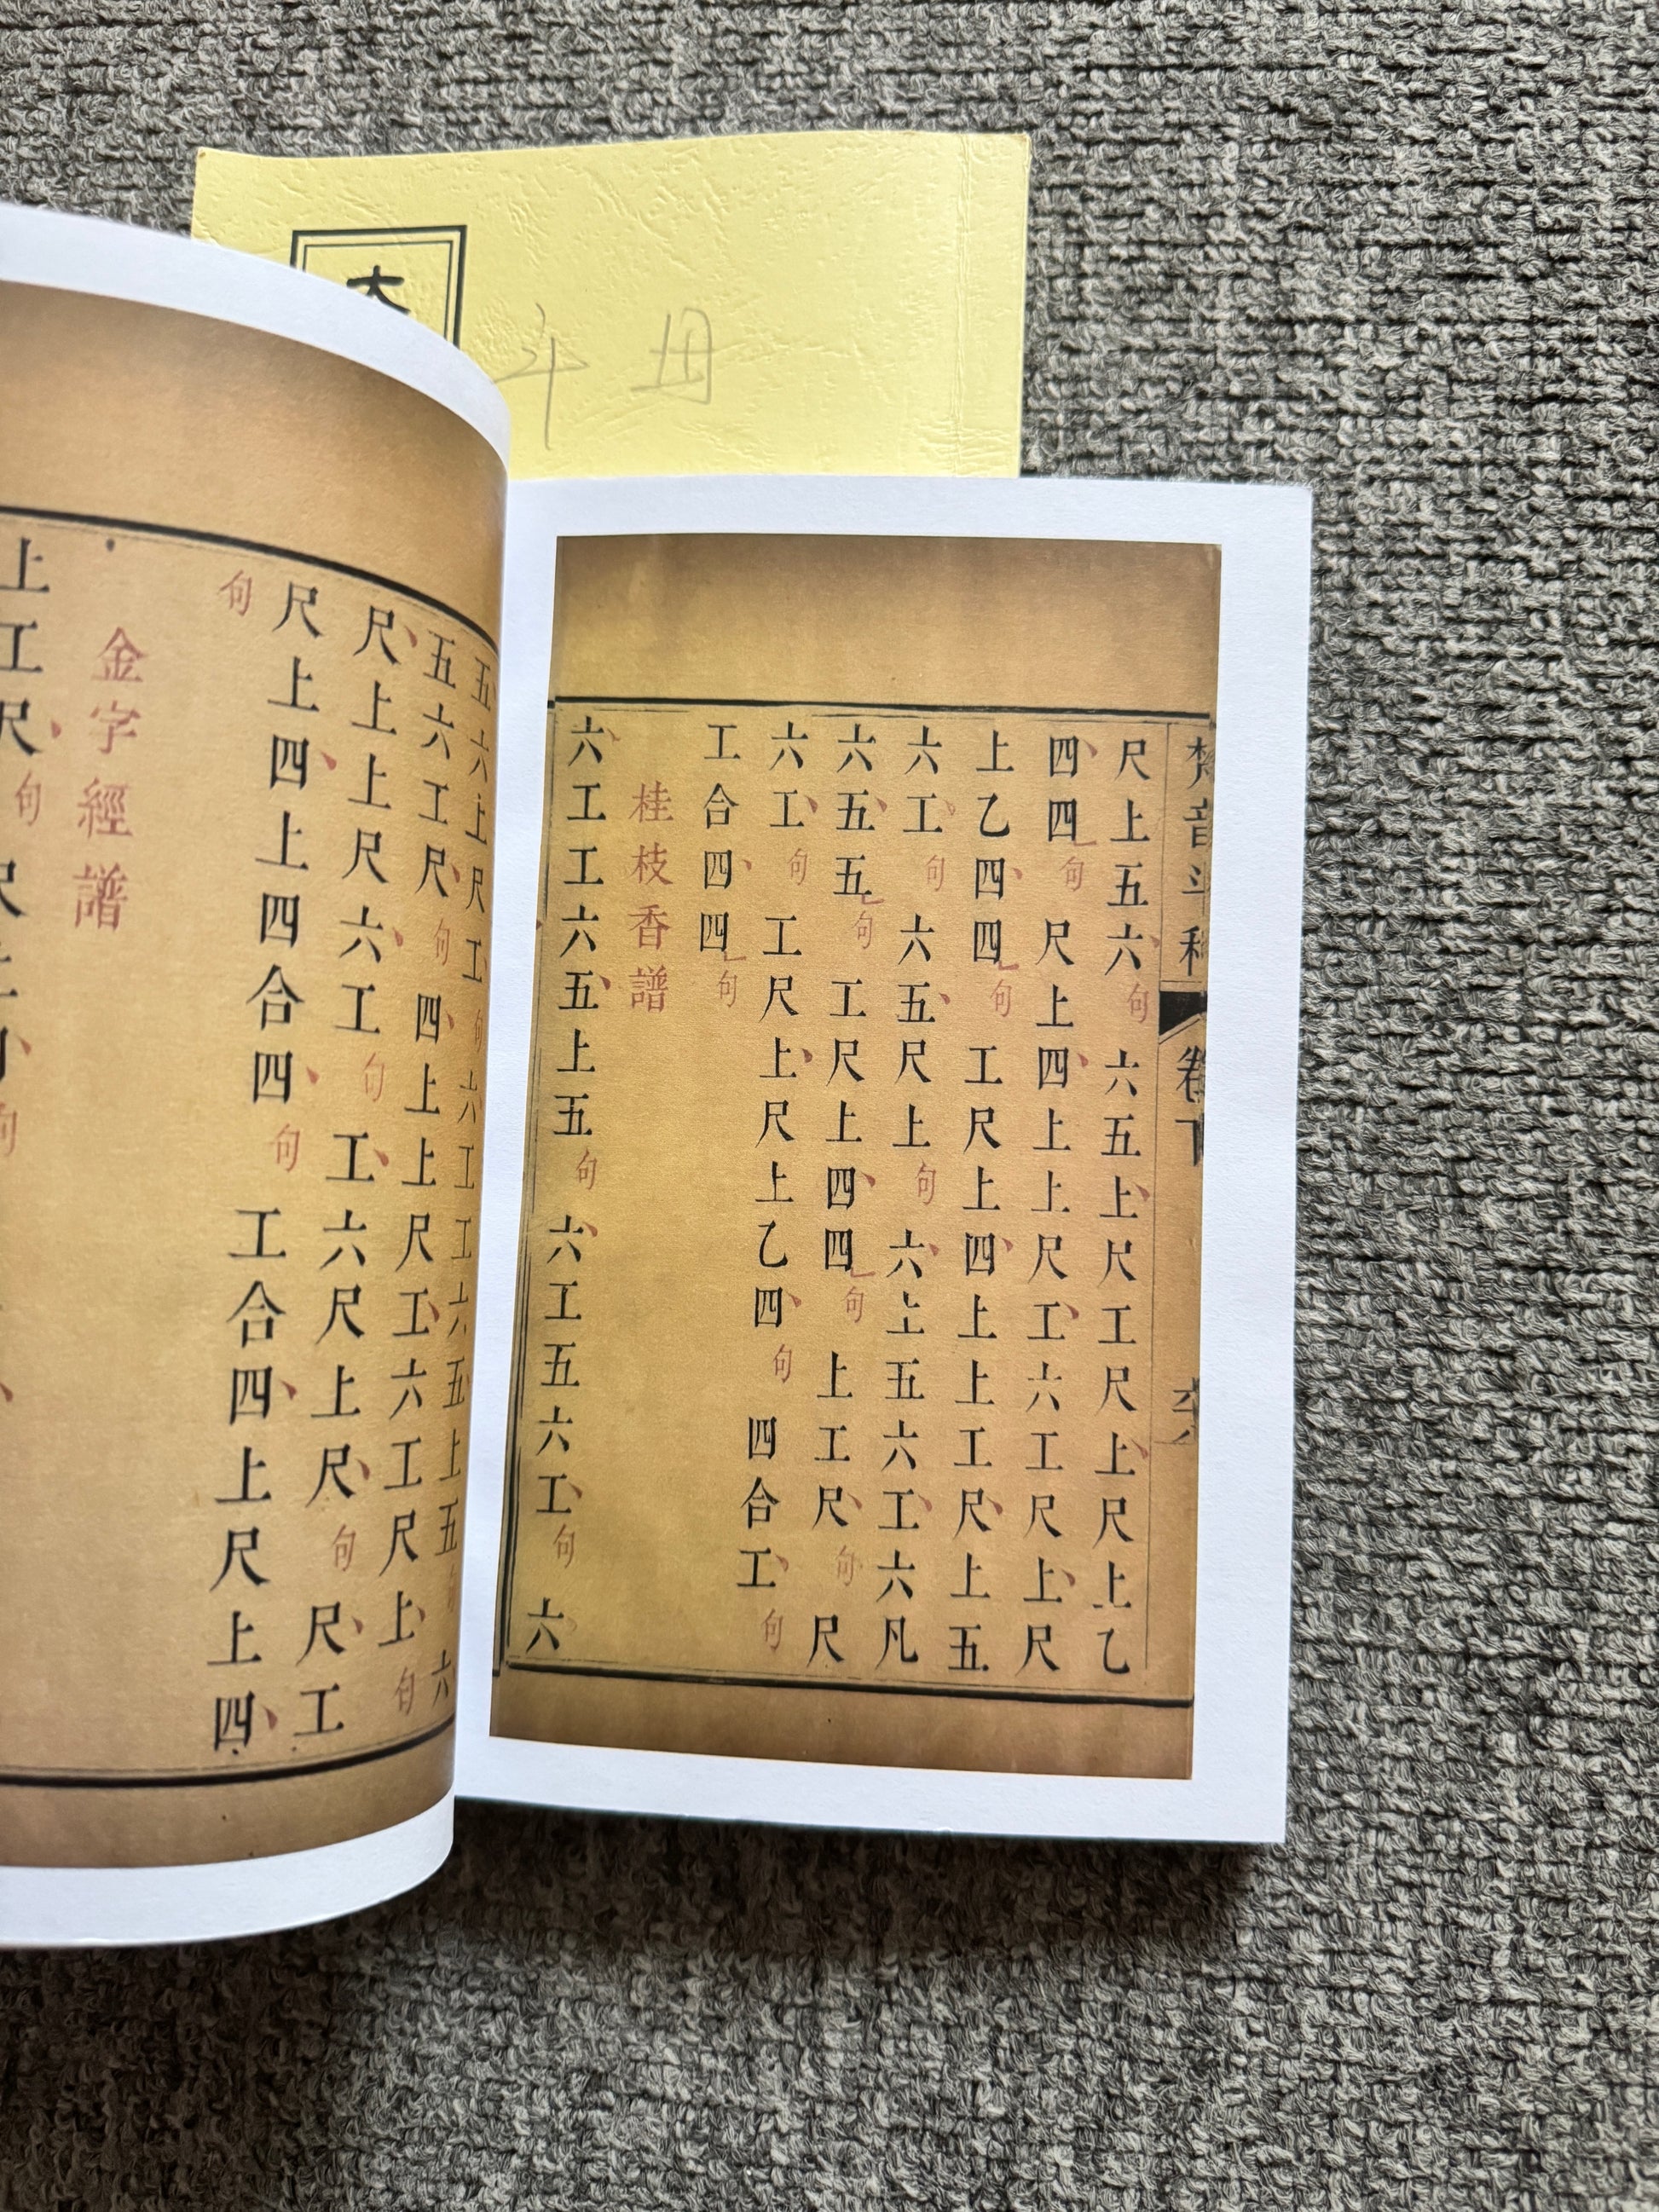 斗母
梵音斗科 卷下
尺上五六句 六五上尺工尺上尺上乙
四四句 尺上四上上尺工六工尺上尺
上乙四四句 工尺上四上上工尺上五
六工句 六五尺上句 六上五六工六凡
六五五句 工尺上四四句 上工尺句 尺
六工句 工尺上尺上乙四句 四合工句
工合四四句
桂枝香譜
六工工六五上五句 六工五六工句 六
五六上尺工句 六工工六五上五 六
五六工尺句 四上上尺工六工尺上句
尺上上尺六工句 工六尺上尺句 尺工
尺上四上四合四句 工合四上尺上四
句
金字經譜
上工尺句